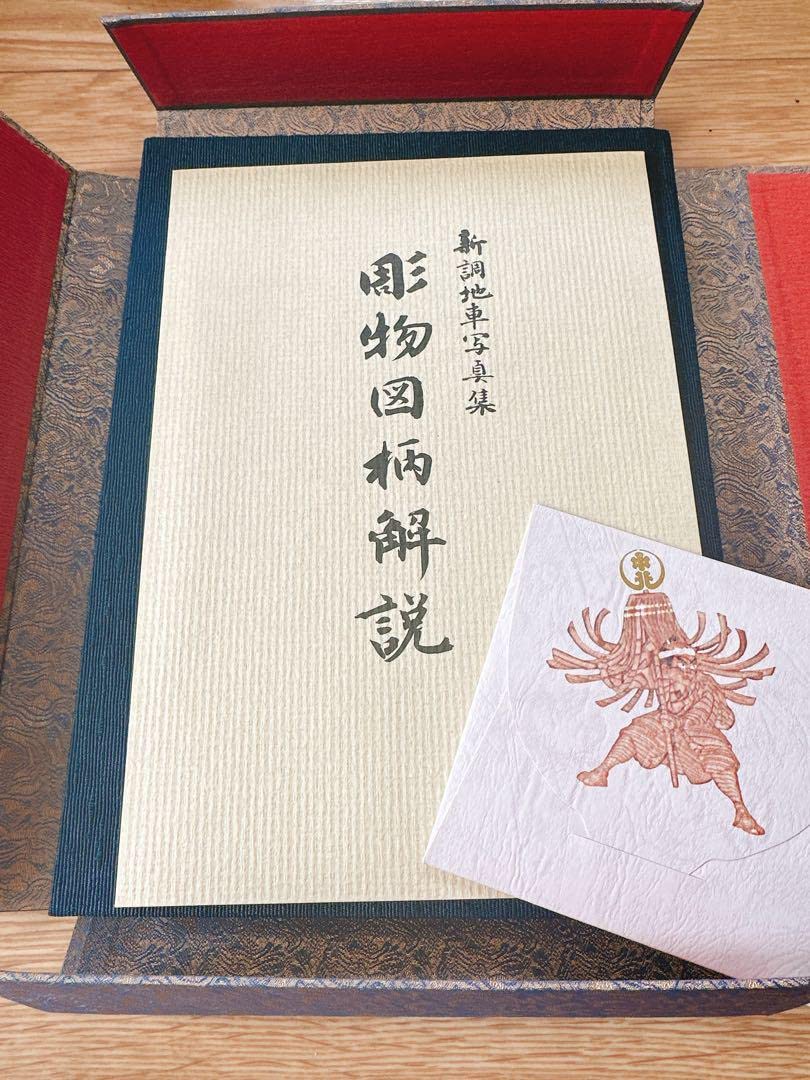 新調地車写真集
彫物図柄解説
北